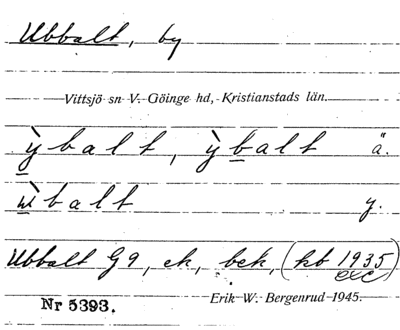 Ubbalt, by
Vittsjö sn V. Göinge hd, Kristianstads län.
ỳbalt, ỳbalt ä.
ẁbalt y.
Ubbalt G9, ek, bek, (kb 1935
exc)
Nr 5393. Erik W. Bergenrud 1945.